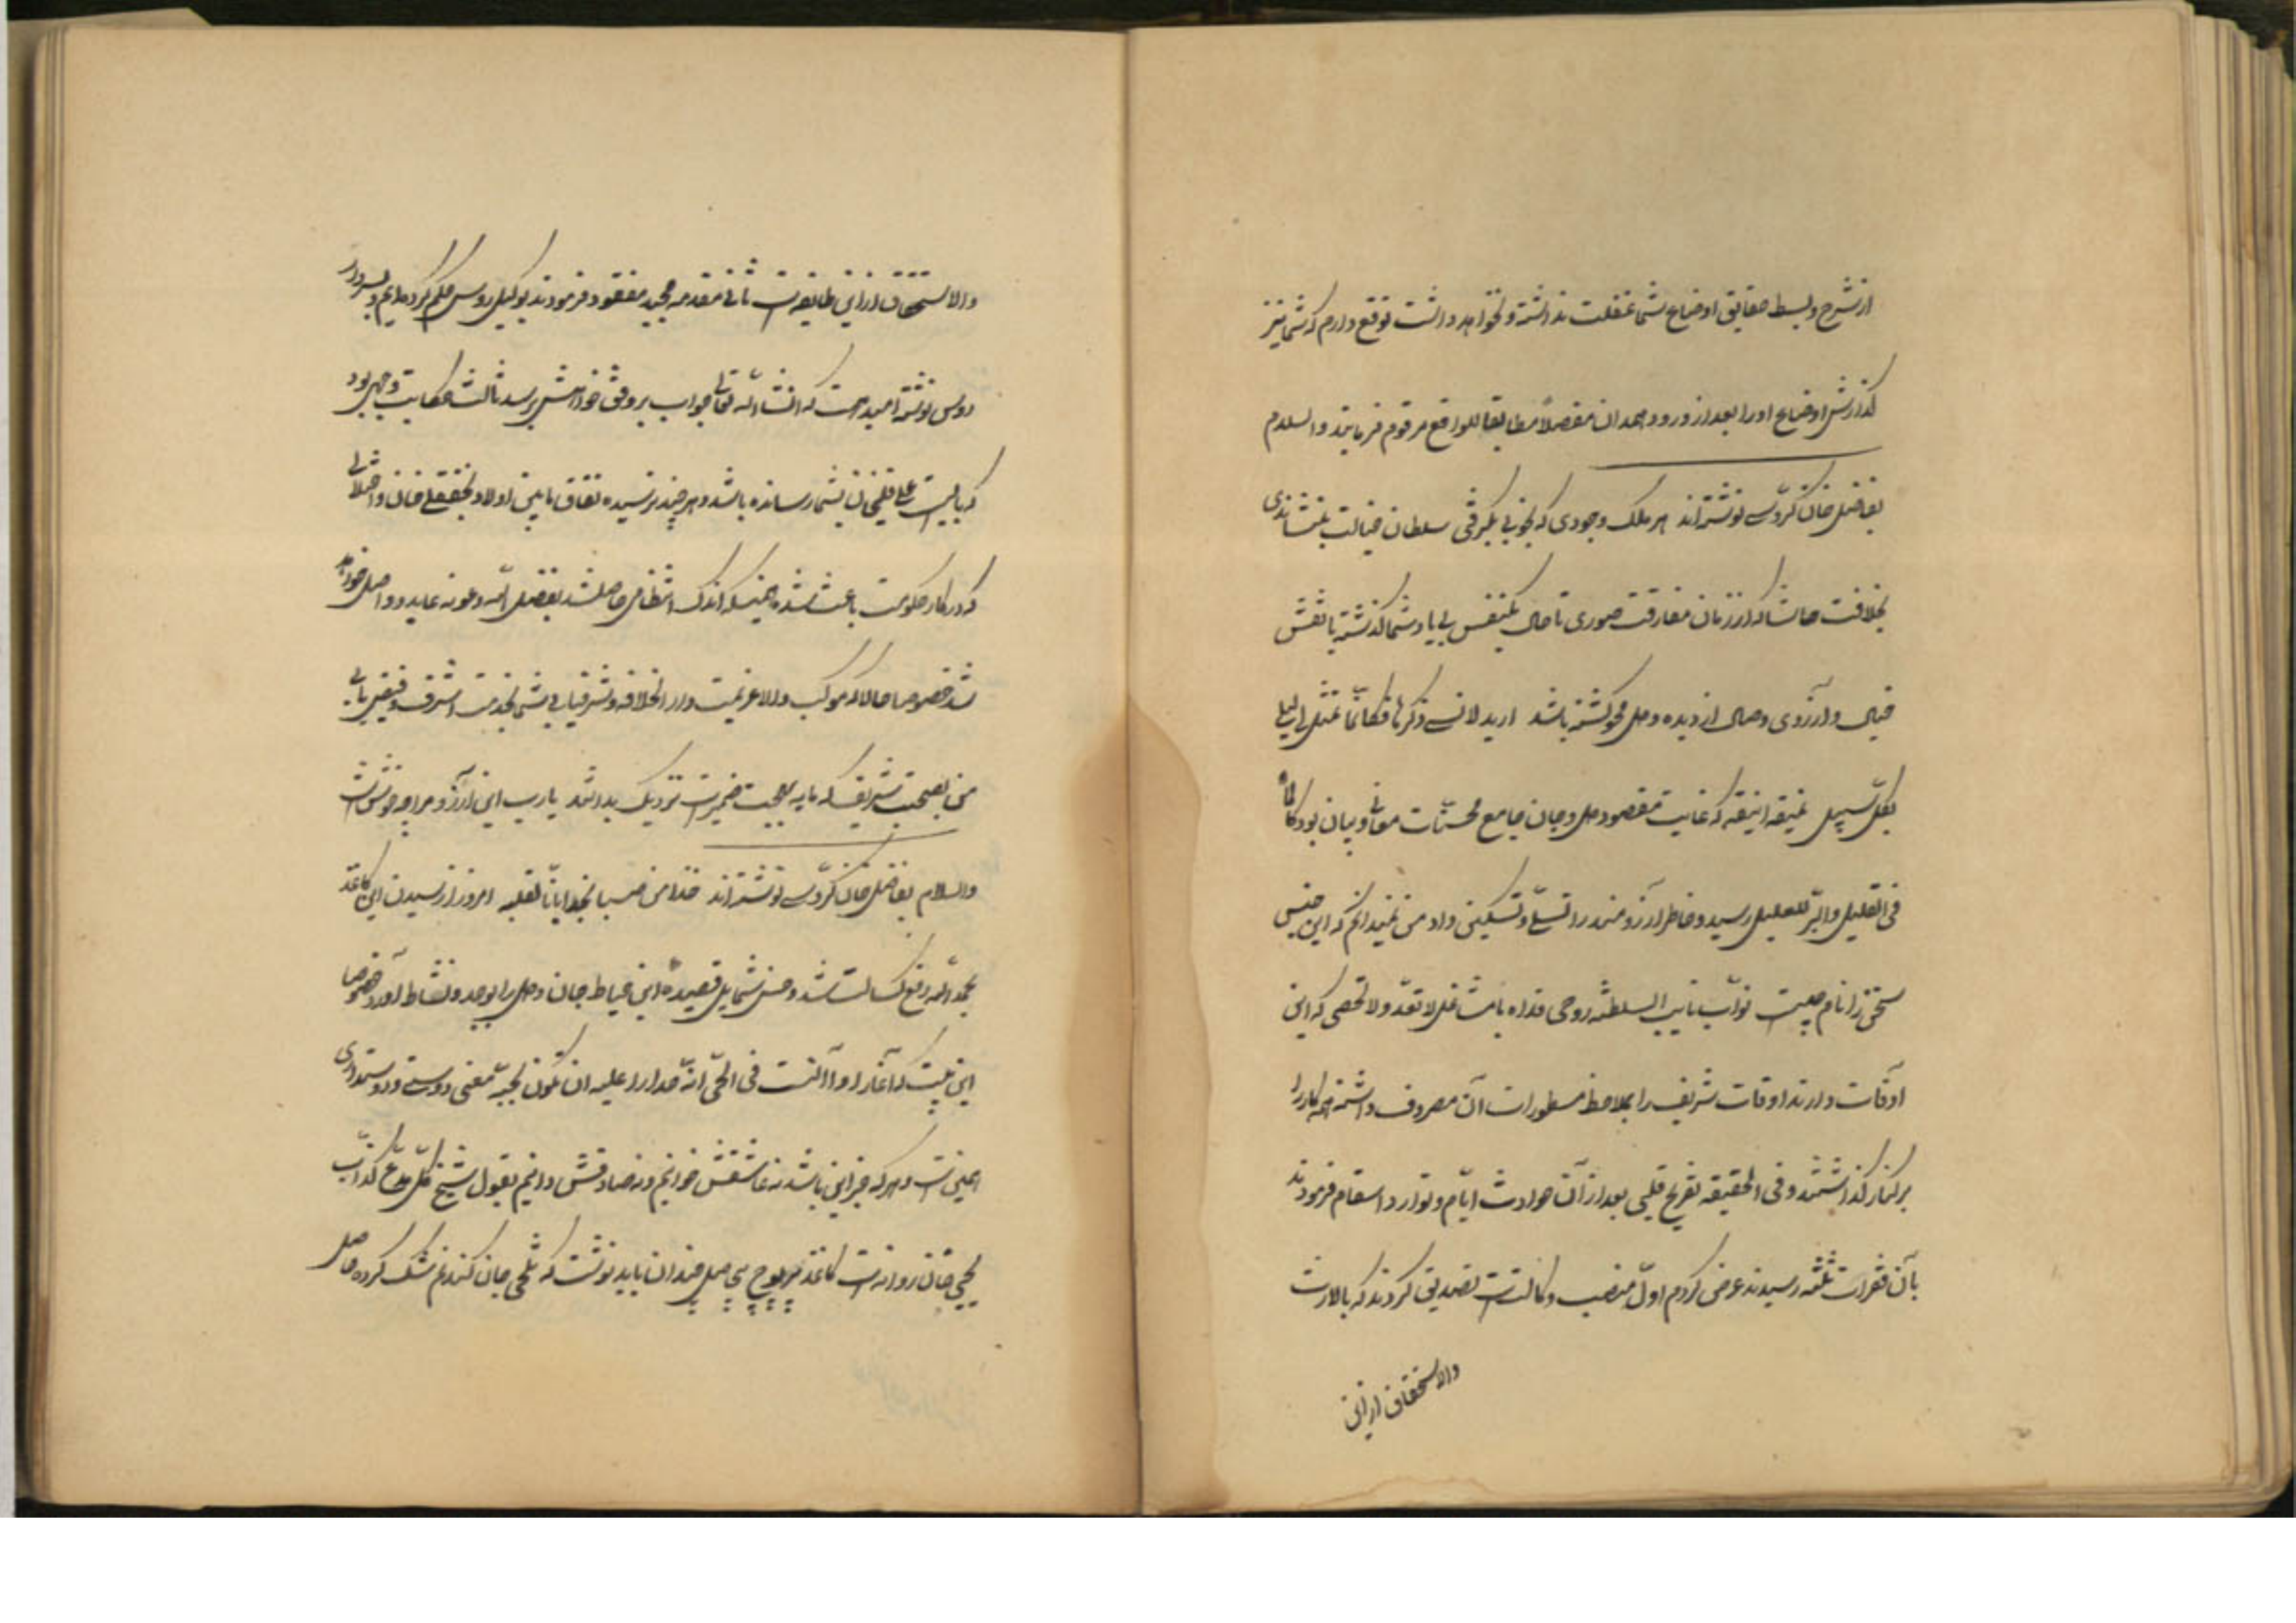 از شرح و بسط حقایق اوضاع شما غفلت نداشته و نخواهد داشت توقع دارم که شما نیز
گذارش اوضاع او را بعد از ورود همدان مفصلاً مطابقا للواقع مرقوم فرمایند والسلام
بفاضل خان گروسی نوشته‌اند هر ملک وجودی که بخوبی بگرفتی سلطان خیالت بنشاندی
بخلافت حاشا که از زمان مفارقت صوری تا حال یکنفس بی یاد شما گذشته یا نقش
خیال و آرزوی وصال از دیده و دل محو گشته باشد ارید لانسی ذکرها فکانما تمثل لی لیلی
بکل سبیل نمیقه انیقه که غایت مقصود دل و جان جامع محسنات معانی و بیان بود کالماء
فی الغلیل و البرء للعلیل رسید و خاطر آرزومند را تسلی و تسکینی داد من نمیدانم که این جنس
سخن را نام چیست نواب نایب السلطنه روحی فداه با مشاغل لا تعد و لا تحصی که این
اوقات دارند اوقات شریف را بملاحظه مسطورات آن مصروف داشته همه کار را
برکنار گذاشتند و فی الحقیقه تفریح قلبی بعد از آن حوادث ایام و توارد اسقام فرمودند
بآن فقرات ثلثه رسیدند عرض کردم اول منصب وکالتست تصدیق کردند که بالارث
والاستحقاق از این
والاستحقاق از این طایفه است ثانی مقدمه مجید مفقود فرمودند بوکیل روس حکم کرده‌ایم و بسردار
روس نوشته امید هست که انشاء الله تعالی جواب بر وفق خواهش برسد ثالث حکایت وجهی بود
که بایست علیقلیخان بشما رسانده باشد و هر چند نرسیده نفاق مابین اولاد نجفقلی خان و اختلالی
که در کار حکومت باعث شده همینکه اندک انتظامی حاصل شد بفضل الله و عونه عاید و واصل خواهد
شد خصوصا حالا که موکب والا عزیمت دار الخلافه و شرفیابی شما بخدمت اشرف و فیض یابی
من بصحبت شریف که مایه بهجت ضمیر است نزدیک بداشتند یا رب این آرزو مرا چه خوش است
والسلام بفاضل خان گروسی نوشته‌اند خذا من صبا نجد امانا لقلبه امروز از رسیدن این کاغذ
بحمد الله رفع کسالت شد و حسن شمایل قصیده این خیاط جان و دل را بوجد و نشاط آورد خصوصا
این بیت که اغار اذا آنست فی الحی انة حذارا علیه ان تکون لحبه معنی دوستی و دوستداری
همین است و هر که جز این باشد نه عاشقش خوانم و نه صادقش دانیم بقول شیخ کل مدع کذاب
یحیی خان روانه است کاغذ مربوح بی میل چندان باید نوشت که یحیی جان کند غم مشک کرده حاصل